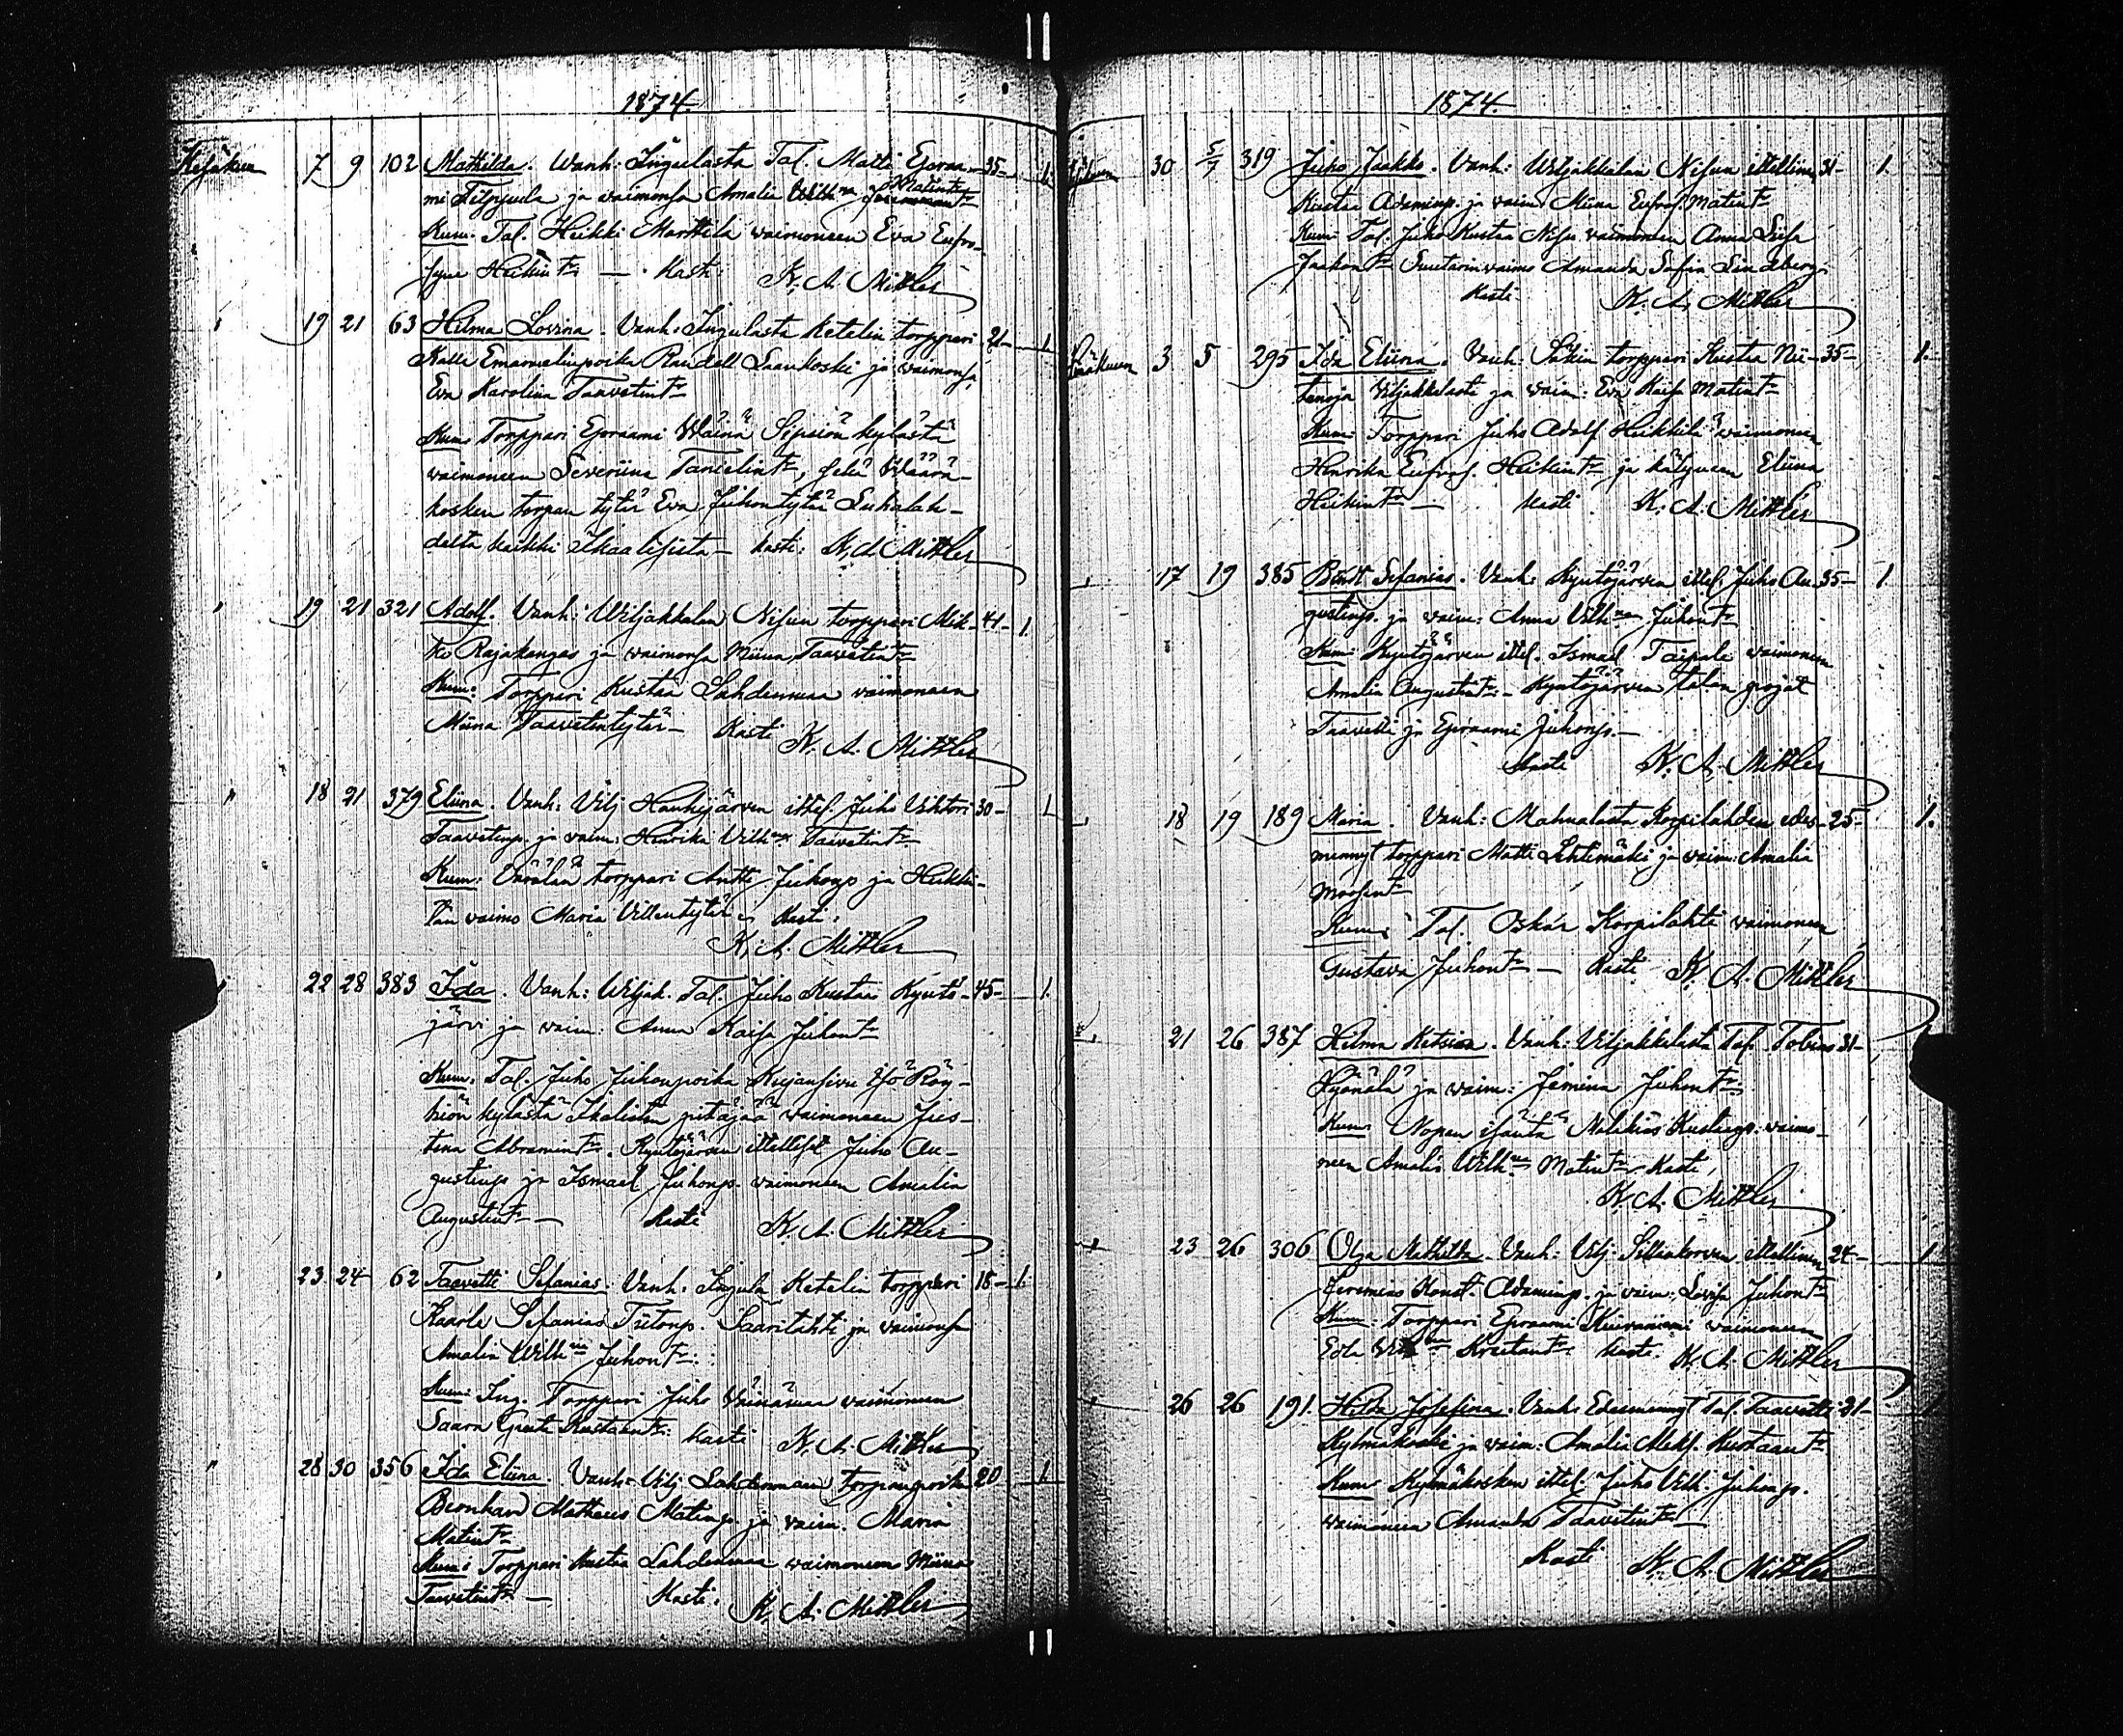 1874.
Kesäkuu 7 9 102 Mathilda. Wanh. Inkulasta Tal. Matti Eprai- 35- 1.
mi Filppula ja waimonsa Amalia Wilh:na Matint:r
Kum. Tal. Heikki Marttila waimoneen Eva Eufro-
syne Heikint:r — Kasti: K. A. Mittler
19 21 63 Hilma Lovina. Vanh: Inkulasta Ketelin torppari 21- 1.
Kalle Emanuelinpoika Randell Laankoski ja waimonsa
Eva Karolina Taavetint:r
Kum: Torppari Epraami Wäinä Sipsiön kylästä
waimoneen Severiina Tanielint:r, sekä Määrä-
kosken torpan tytär Eva Juhontytär Luhalah-
delta kaikki Ikaalisista — Kasti: K. A. Mittler
19 21 321 Adolf. Vanh: Wiljakkalan Nisun torppari Mik- 41- 1.
ko Rajakangas ja waimonsa Miina Taavetint:r
Kum: Torppari Kustaa Lahdenmaa waimoneen
Miina Taavetintytär — Kasti K. A. Mittler
" 18 21 379 Eliina. Vanh: Vilj. Haukijärven ittel. Juho Viktori 30- 1.
Taavetinp. ja vaim: Henrika Vilh:na Taavetint:r
Kum: torppari Antti Juhonp. ja Heikki-
län vaimo Maria Villentytär — Kasti:
K. A. Mittler
22 28 383 Ida. Vanh: Wiljak. Tal. Juho Kustaa Kyntö- 45- 1.
järvi ja vaim: Anna Kaisa Juhont:r
Kum. Tal. Juho Juhonpoika Kujansivu Iso Röy-
hiön kylästä Ikalisten pitäjää waimoneen Jus-
tina Abramint:r. Kyntöjärven ittelliset Juho Au-
gustinp. ja Ismael Juhonp. waimoneen Amalia
Augustint:r — Kasti K. A. Mittler
23 24 62 Taavetti Sefanias. Vanh. Inkula Ketelin torppari 18- 1.
Kaarle Sefanias Tiitonp. Saarilahti ja vaimonsa
Amalia Wilh:na Juhont:r:
Kum: Ink. Torppari Juho Väinämaa waimoneen
Saara Greta Kustaant:r: Kasti K. A. Mittler
" 28 30 356 Ida Eliina. Vanh: Vilj. Lahdenmaan torpanpoika 20 1.
Bernhard Matheus Matinp. ja vaim. Maria
Matint:r
Kum: Torppari Kustaa Lahdenmaa waimoneen Miina
Taavetint:r — Kasti: K. A. Mittler
1874.
Kesäkuu 30 5/7 319 Juho Jaakko. Vanh: Wiljakkalan Nisun ittellinen 31- 1.
Kustaa Adaminp. ja vaim. Miina Eufros. Matint:r
Kum: Tal. Juho Kustaa Nisu vaimoneen Anna Liisa
Jaakont:r Suutarinvaimo Amanda Sofia Lindberg.
Kasti. K. A. Mittler
Heinäkuun 3 5 295 Ida Eliina. Vanh: torppari Kustaa Nii- 35- 1.
tenoja Viljakkalasta ja vaim: Eva Kaisa Matint:r
Kum: Torppari Juho Adolf Heikkilä waimoneen
Henrika Eufros. Heikint:r ja kälyneen Eliina
Heikint:r — Kasti K. A. Mittler
17 19 385 Sefanias. Vanh: Kyntöjärven ittel. Juho Au- 35- 1
gustinp. ja vaim: Anna Vilh:na Juhont:r
Kum: Kyntöjärven ittel. Ismael Taipale waimoneen
Amalia Augustint:r - Kyntöjärven talon pojat
Taavetti ja Epraami Juhonp. —
Kasti K. A. Mittler
18 19 189 Maria. Vanh: Mahnalasta Korpilahden edes- 25- 1.
mennyt torppari Matti Lehtimäki ja vaim: Amalia
Moosent:r
Kum: Tal. Oskar Korpilahti waimoneen
Gustava Juhont:r — Kasti K. A. Mittler
21 26 387 Hilma Ketsia. Vanh: Viljakkalasta Tal. Tobias 31-
ja vaim: Jemina Juhont:r:
Kum: Nopan isäntä Malikias Kustaap. vaimo-
neen Amalia Wilh:na Matint:r Kasti,
K. A. Mittler
23 26 306 Olga Mathilda. Vanh: Vilj. ittellinen 24- 1
Jeremias Konst. Adaminp. ja vaim: Lovisa Juhont:r
Kum: Torppari Epraami Kuivaniemi vaimoneen
Eda Vilh:na Kustant:r Kasti. K. A. Mittler
26 26 191. Hilda Josefina. Vanh: Edesmennyt Tal. Taavetti 31-
Kylmäkoski ja vaim: Amalia Aleks. Kustaant:r
Kum: Kylmäkosken ittel. Juho Vilh. Juhonp.
waimoneen Amanda Taavetint:r —
Kasti K. A. Mittler